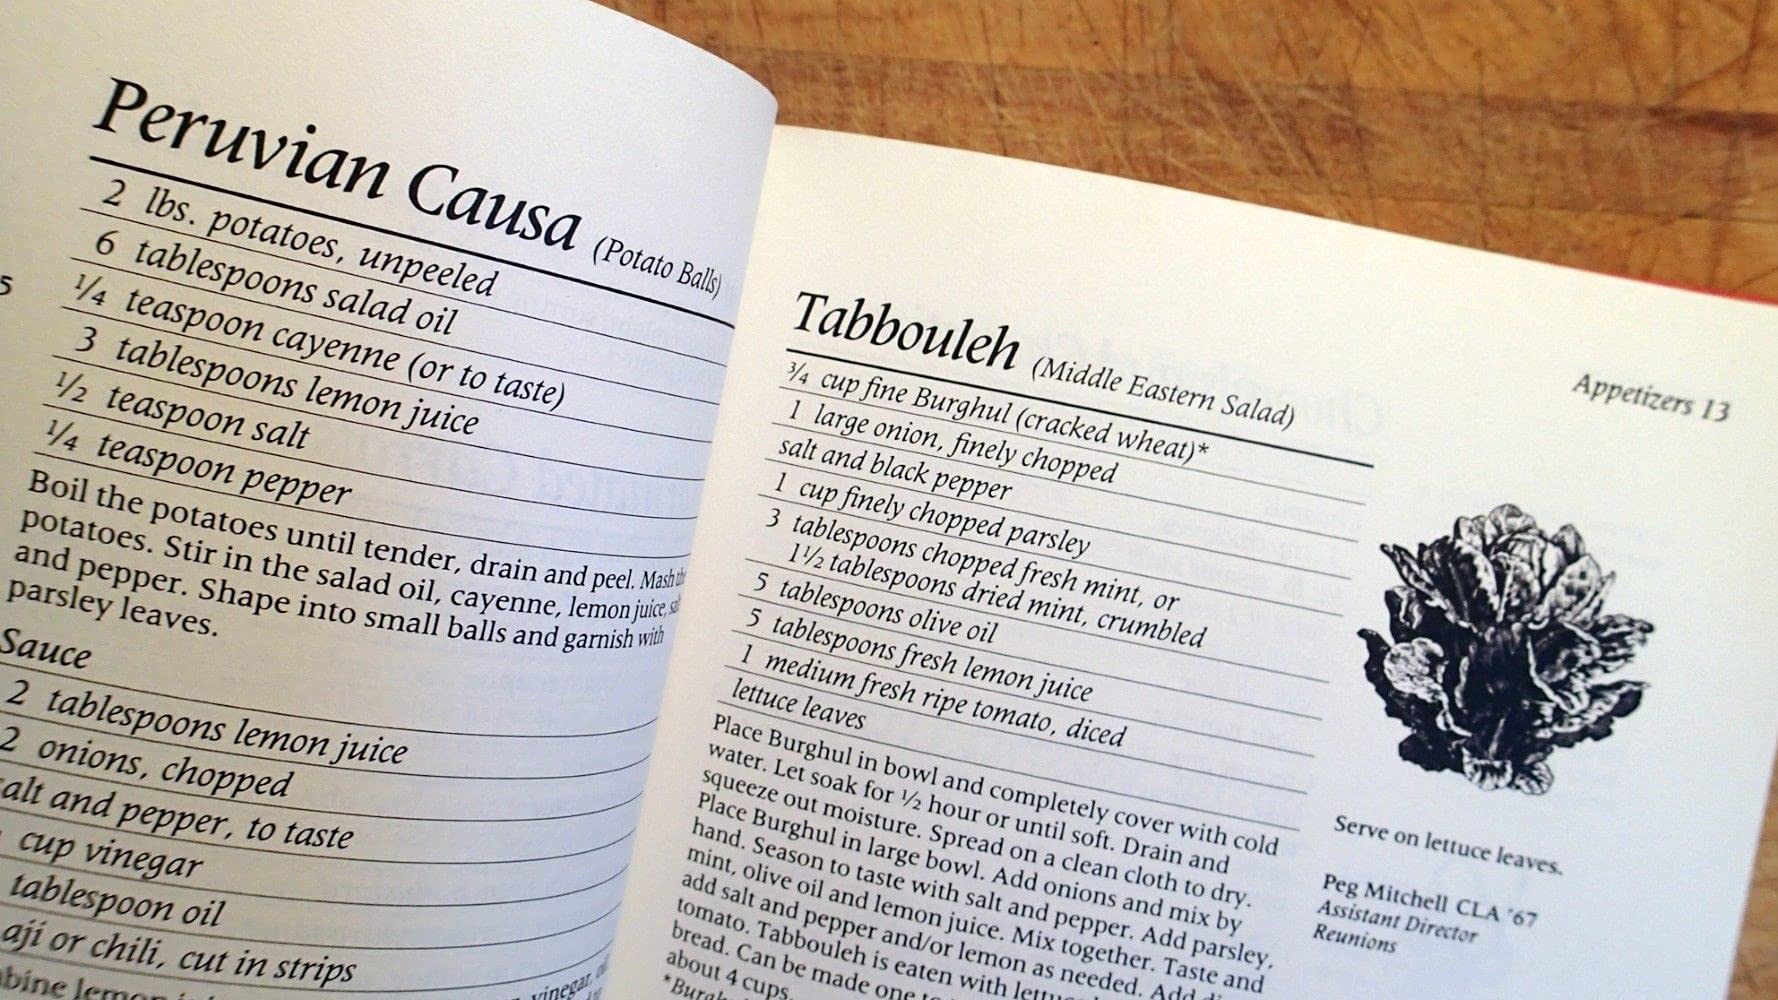 Peruvian Causa (Potato Balls)
2 lbs. potatoes, unpeeled
6 tablespoons salad oil
1/4 teaspoon cayenne (or to taste)
3 tablespoons lemon juice
1/2 teaspoon salt
1/4 teaspoon pepper
Boil the potatoes until tender, drain and peel. Mash the
potatoes. Stir in the salad oil, cayenne, lemon juice,
and pepper. Shape into small balls and garnish with
parsley leaves.
Sauce
2 tablespoons lemon juice
2 onions, chopped
salt and pepper, to taste
cup vinegar
tablespoon oil
aji or chili, cut in strips
lemon
vinegar,
5
Appetizers 13
Tabbouleh (Middle Eastern Salad)
3/4 cup fine Burghul (cracked wheat)*
1 large onion, finely chopped
salt and black pepper
1 cup finely chopped parsley
3 tablespoons chopped fresh mint, or
1 1/2 tablespoons dried mint, crumbled
5 tablespoons olive oil
5 tablespoons fresh lemon juice
1 medium fresh ripe tomato, diced
lettuce leaves
Place Burghul in bowl and completely cover with cold
water. Let soak for 1/2 hour or until soft. Drain and
squeeze out moisture. Spread on a clean cloth to dry.
Place Burghul in large bowl. Add onions and mix by
hand. Season to taste with salt and pepper. Add parsley,
mint, olive oil and lemon juice. Mix together. Taste and
add salt and pepper and/or lemon as needed. Add
tomato. Tabbouleh is eaten with lettuce
bread. Can be made one
about 4 cups.
Serve on lettuce leaves.
Peg Mitchell CLA '67
Assistant Director
Reunions